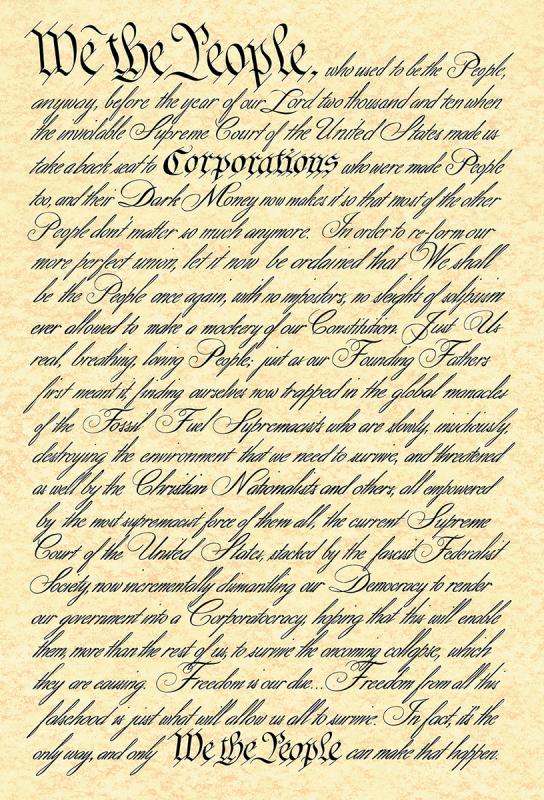 We the People, who used to be the People,
anyway, before the year of our Lord two thousand and ten when
the inviolable Supreme Court of the United States made us
take a back seat to Corporations who were made People
too, and their Dark Money now makes it so that most of the other
People don't matter so much anymore. In order to re-form our
more perfect union, let it now be ordained that We shall
be the People once again, with no impostors, no sleight of solipsism
ever allowed to make a mockery of our Constitution. Just Us
real, breathing, loving People; just as our Founding Fathers
first meant it; finding ourselves now trapped in the global manacles
of the Fossil Fuel Supremacists who are slowly, insidiously,
destroying the environment that we need to survive, and threatened
as well by the Christian Nationalists and others, all empowered
by the most supremacist force of them all, the current Supreme
Court of the United States, stacked by the fascist Federalist
Society, now incrementally dismantling our Democracy to render
our government into a Corporatocracy, hoping that this will enable
them, more than the rest of us, to survive the oncoming collapse, which
they are causing. Freedom is our due... Freedom from all this
falsehood is just what will allow us all to survive. In fact, it's the
only way, and only We the People can make that happen.